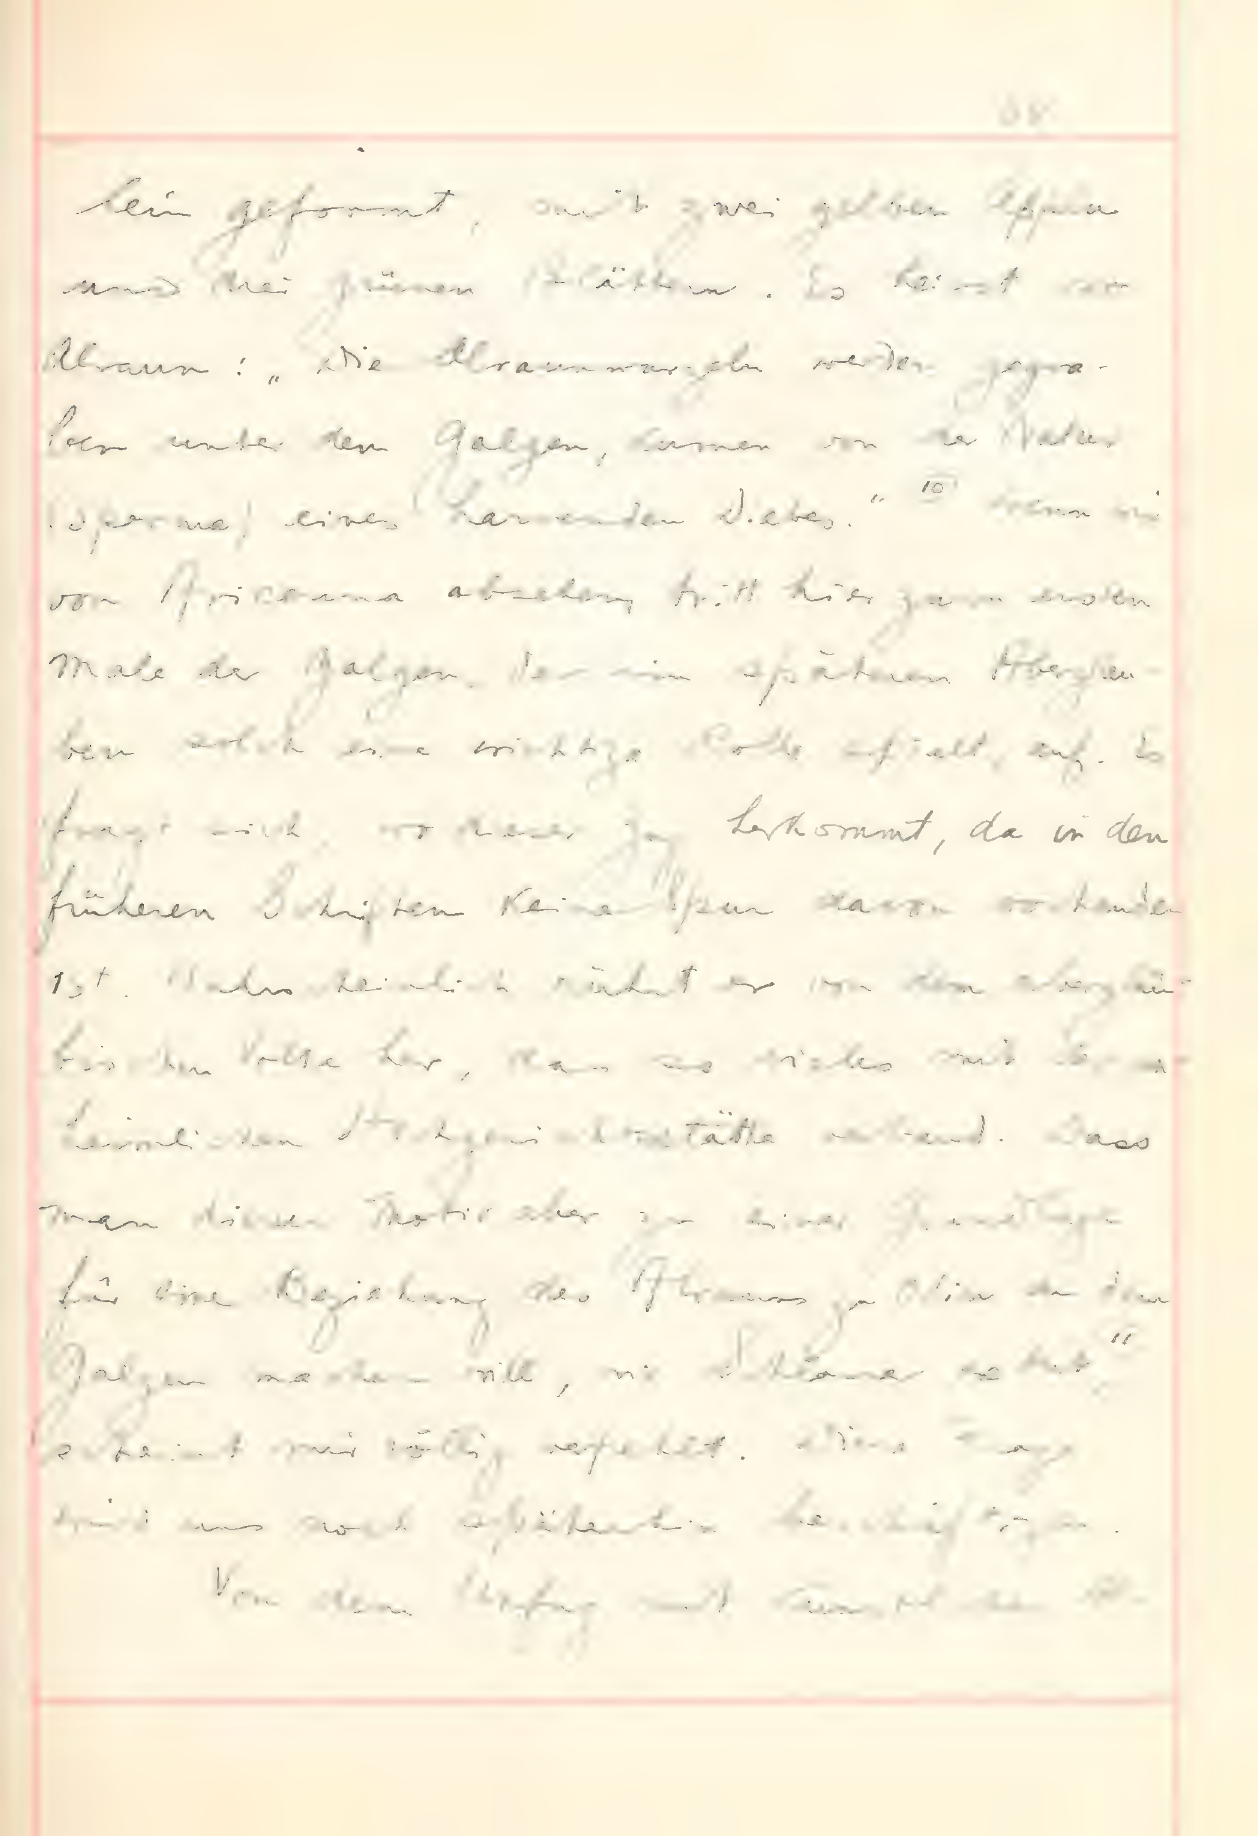 lein geformt, mit zwei gelben Äpfeln
und drei grünen Blättern. Es heisst vom
Alraun: „Die Alraunwurzeln werden gegra-
ben unter dem Galgen, kumen von der Natur
(Sperma) eines harnenden Diebes." 10) Wenn wir
von absehen, tritt hier zum ersten
Male der Galgen, der im späteren Aberglau-
ben solch eine wichtige Rolle spielt, auf. Es
fragt sich, wo dieser Zug herkommt, da in den
früheren Schriften keine Spur davon vorhanden
ist. Wahrscheinlich rührt er von dem abergläu-
bischen Volke her, das so vieles mit der un-
heimlichen Hochgerichtsstätte verband. Dass
man dieses Motiv aber zu einer Grundlage
für eine Beziehung des Alrauns zu Odin an dem
Galgen machen will, wie 11
scheint mir völlig verfehlt. Diese Frage
wird uns noch späterhin beschäftigen.
Von dem Unfug mit Al-